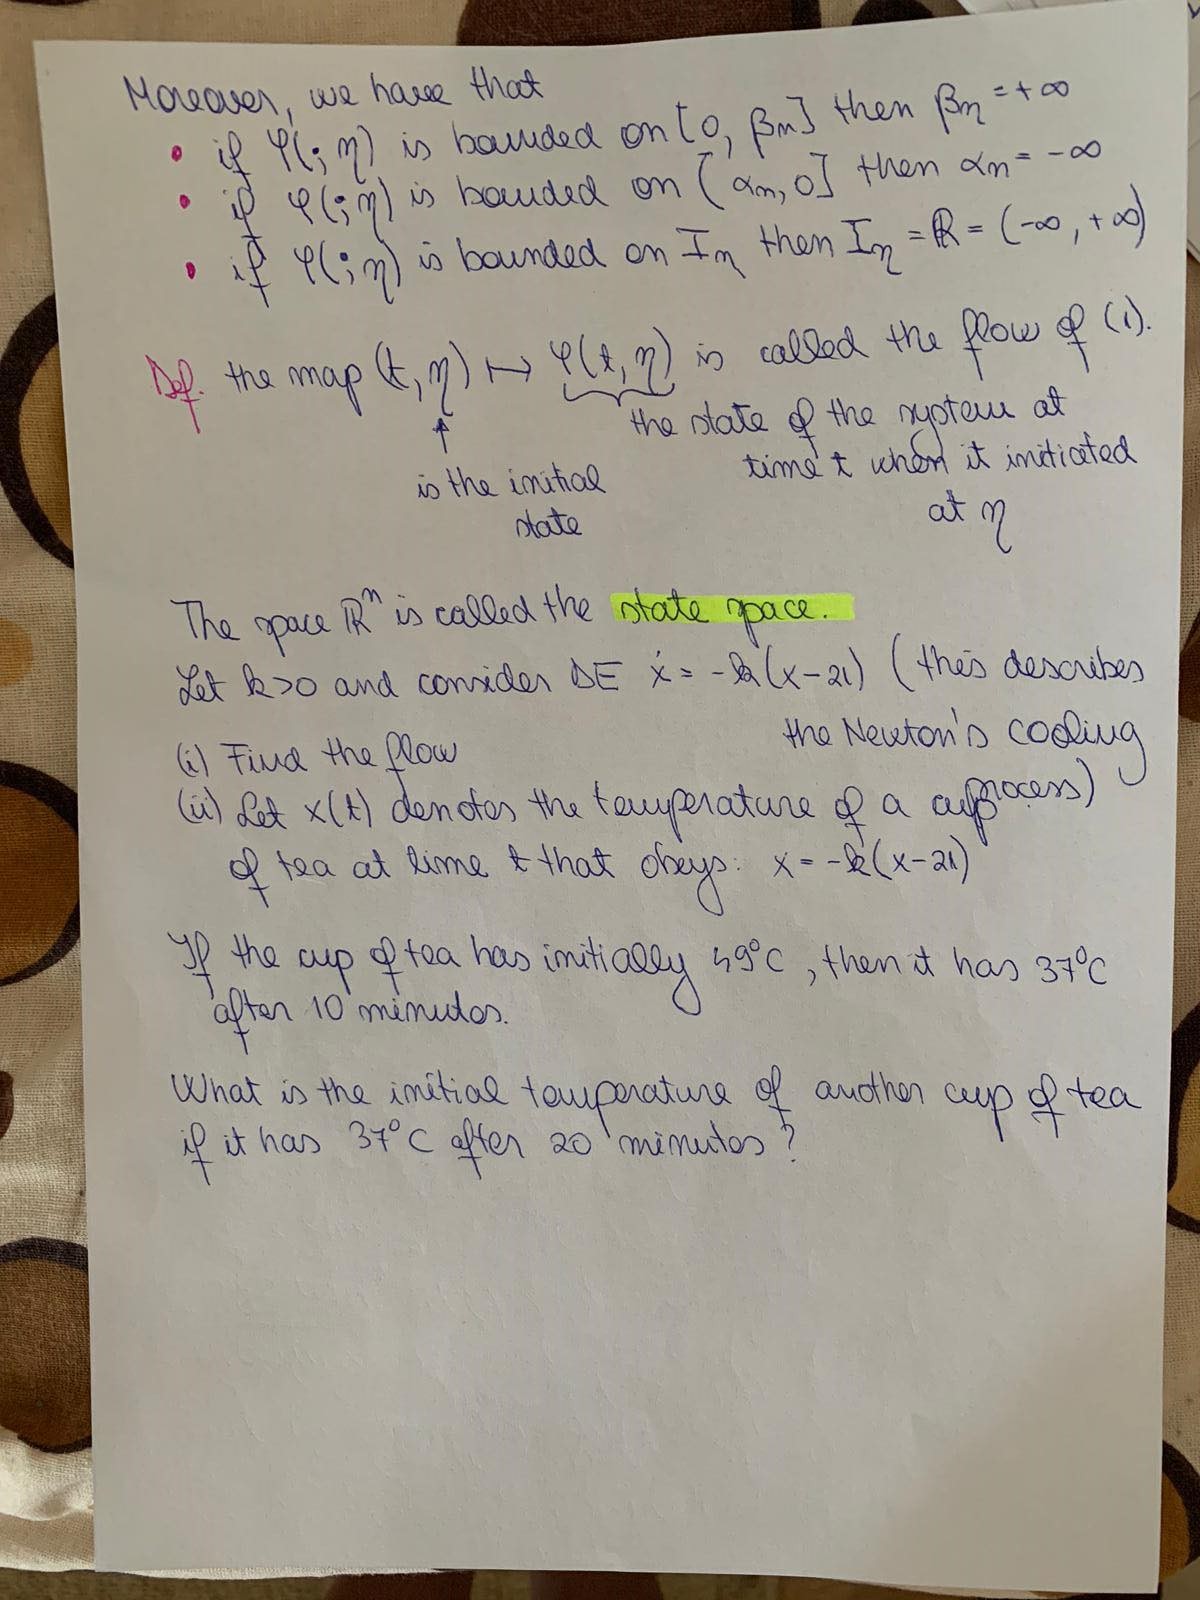 Moreover, we have that
• if φ(·; η) is bounded on [0, βη] then βη = +∞
• if φ(·; η) is bounded on [αη, 0] then αη = -∞
• if φ(·; η) is bounded on Iη then Iη = ℝ = (-∞, +∞)
Def. the map (t, η) ↦ φ(t, η) is called the flow of (1).
↑
is the initial
state
the state of the system at
time t when it initiated
at η
The space ℝⁿ is called the state space.
Let k>0 and consider DE ẋ = -k(x-21) (this describes
the Newton's cooling
process)
(i) Find the flow
(ii) Let x(t) denotes the temperature of a cup
of tea at time t that obeys: ẋ = -k(x-21)
If the cup of tea has initially 49°C, then it has 37°C
after 10 minutes.
What is the initial temperature of another cup of tea
if it has 37°C after 20 minutes?